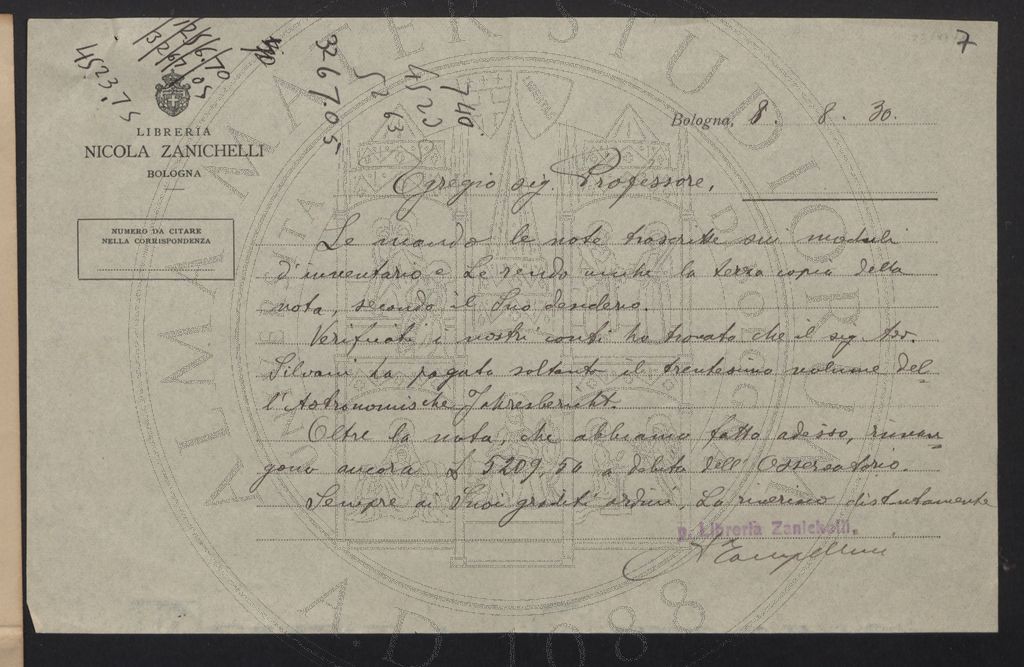 7
3267.05
4523,75
740
4520
52 63
LIBRERIA
NICOLA ZANICHELLI
BOLOGNA
NUMERO DA CITARE
NELLA CORRISPONDENZA
Bologna, 8. 8. 30.
Egregio sig. Professore,
Le mando le note trascritte sui moduli
d'inventario e Le rendo anche la terza copia della
nota, secondo il Suo desiderio.
Verificati i nostri conti ho trovato che il sig.
Silvani ha pagato soltanto il trentesimo volume del
l'Astronomische Jahresbericht.
Oltre la nota, che abbiamo fatto adesso, riman
gono ancora £ 5209,50 a debito dell'Osservatorio.
Sempre ai Suoi graditi ordini, La riverisco distintamente
p. Libreria Zanichelli.
ALMA MATER STUDIORUM
A.D. 1088